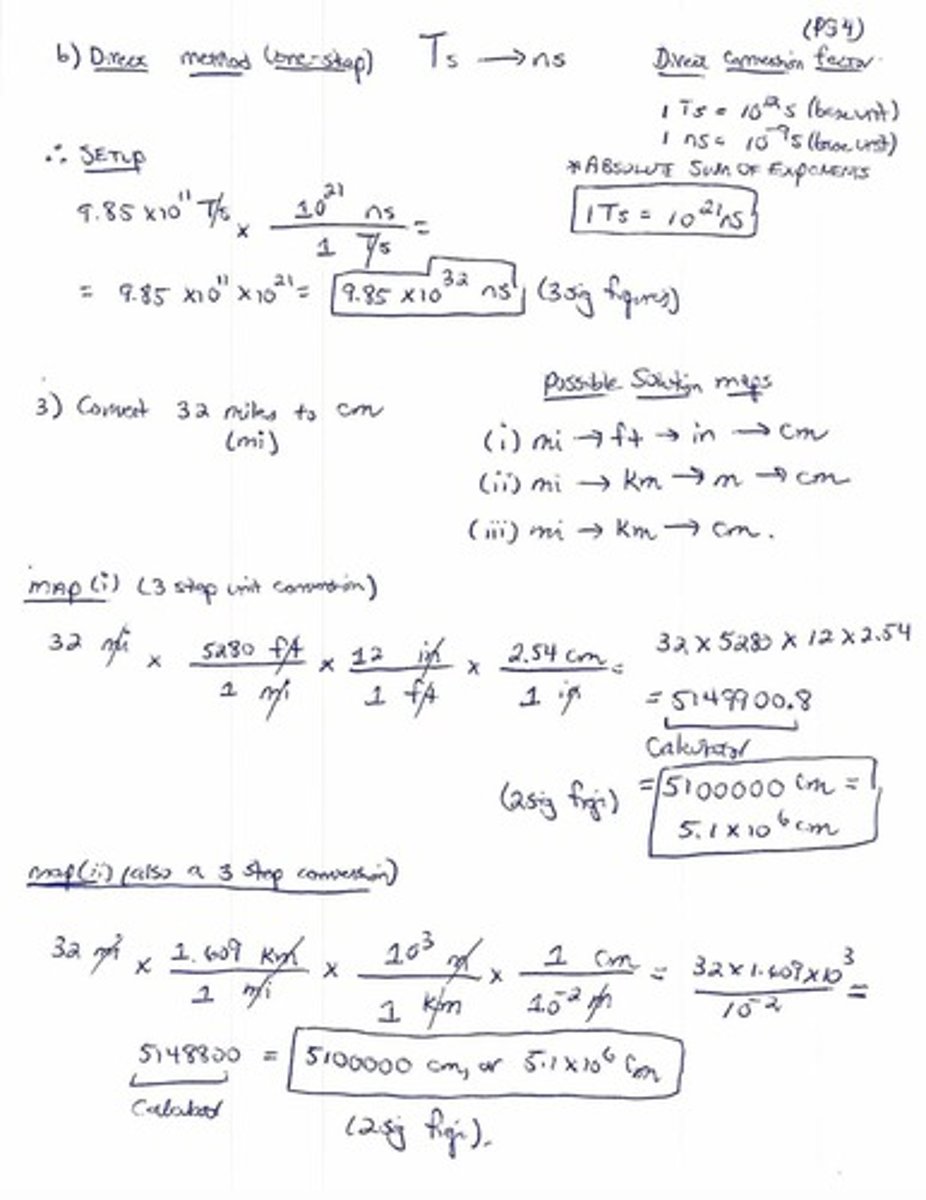 (PG 4)
b) Direct method (one-step) Ts → ns
Direct conversion factor
1 Ts = 10¹²s (base unit)
1 ns = 10⁻⁹s (base unit)
*ABSOLUTE SUM OF EXPONENTS
1 Ts = 10²¹ ns
∴ SETUP
9.85 x10¹¹ Ts x 10²¹ ns / 1 Ts =
= 9.85 x10¹¹ x10²¹ = 9.85 x10³² ns (3 sig figures)
3) Convert 32 miles to cm
(mi)
Possible Solution maps
(i) mi → ft → in → cm
(ii) mi → km → m → cm
(iii) mi → km → cm.
map (i) (3 step unit conversion)
32 mi x 5280 ft / 1 mi x 12 in / 1 ft x 2.54 cm / 1 in =
32 x 5280 x 12 x 2.54
= 5149900.8
Calculated
(2 sig figs) = 5100000 cm =
5.1 x 10⁶ cm
map (ii) (also a 3 step conversion)
32 mi x 1.609 km / 1 mi x 10³ m / 1 km x 1 cm / 10⁻² m = 32 x 1.609 x 10³ / 10⁻² =
5148800 = 5100000 cm, or 5.1 x 10⁶ cm
Calculated
(2 sig figs).